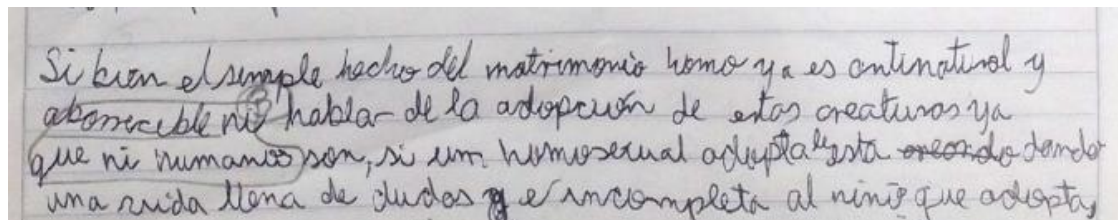 Si bien el simple hecho del matrimonio homo ya es antinatural y
aborrecible ni hablar de la adopción de estas creaturas ya
que ni humanos son, si un homosexual adopta esta creando dando
una vida llena de dudas y e incompleta al niño que adopta,